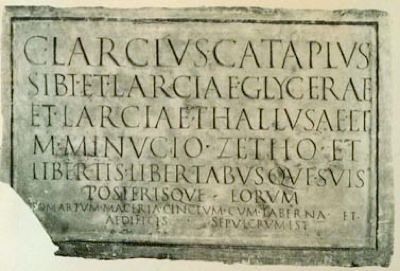 C·LARCIVS CATAPLVS
SIBI·ET·LARCIAE·GLYCERAE
ET·LARCIAE·THALLVSAE·ET
M·MINVCIO·ZETHO·ET
LIBERTIS·LIBERTABVSQVE·SVIS
POSTERISQVE·EORVM
POMARIVM·MACERIA·CINCTVM·CUM·TABERNA·ET
AEDIFICIS SEPVLCRVM·IST